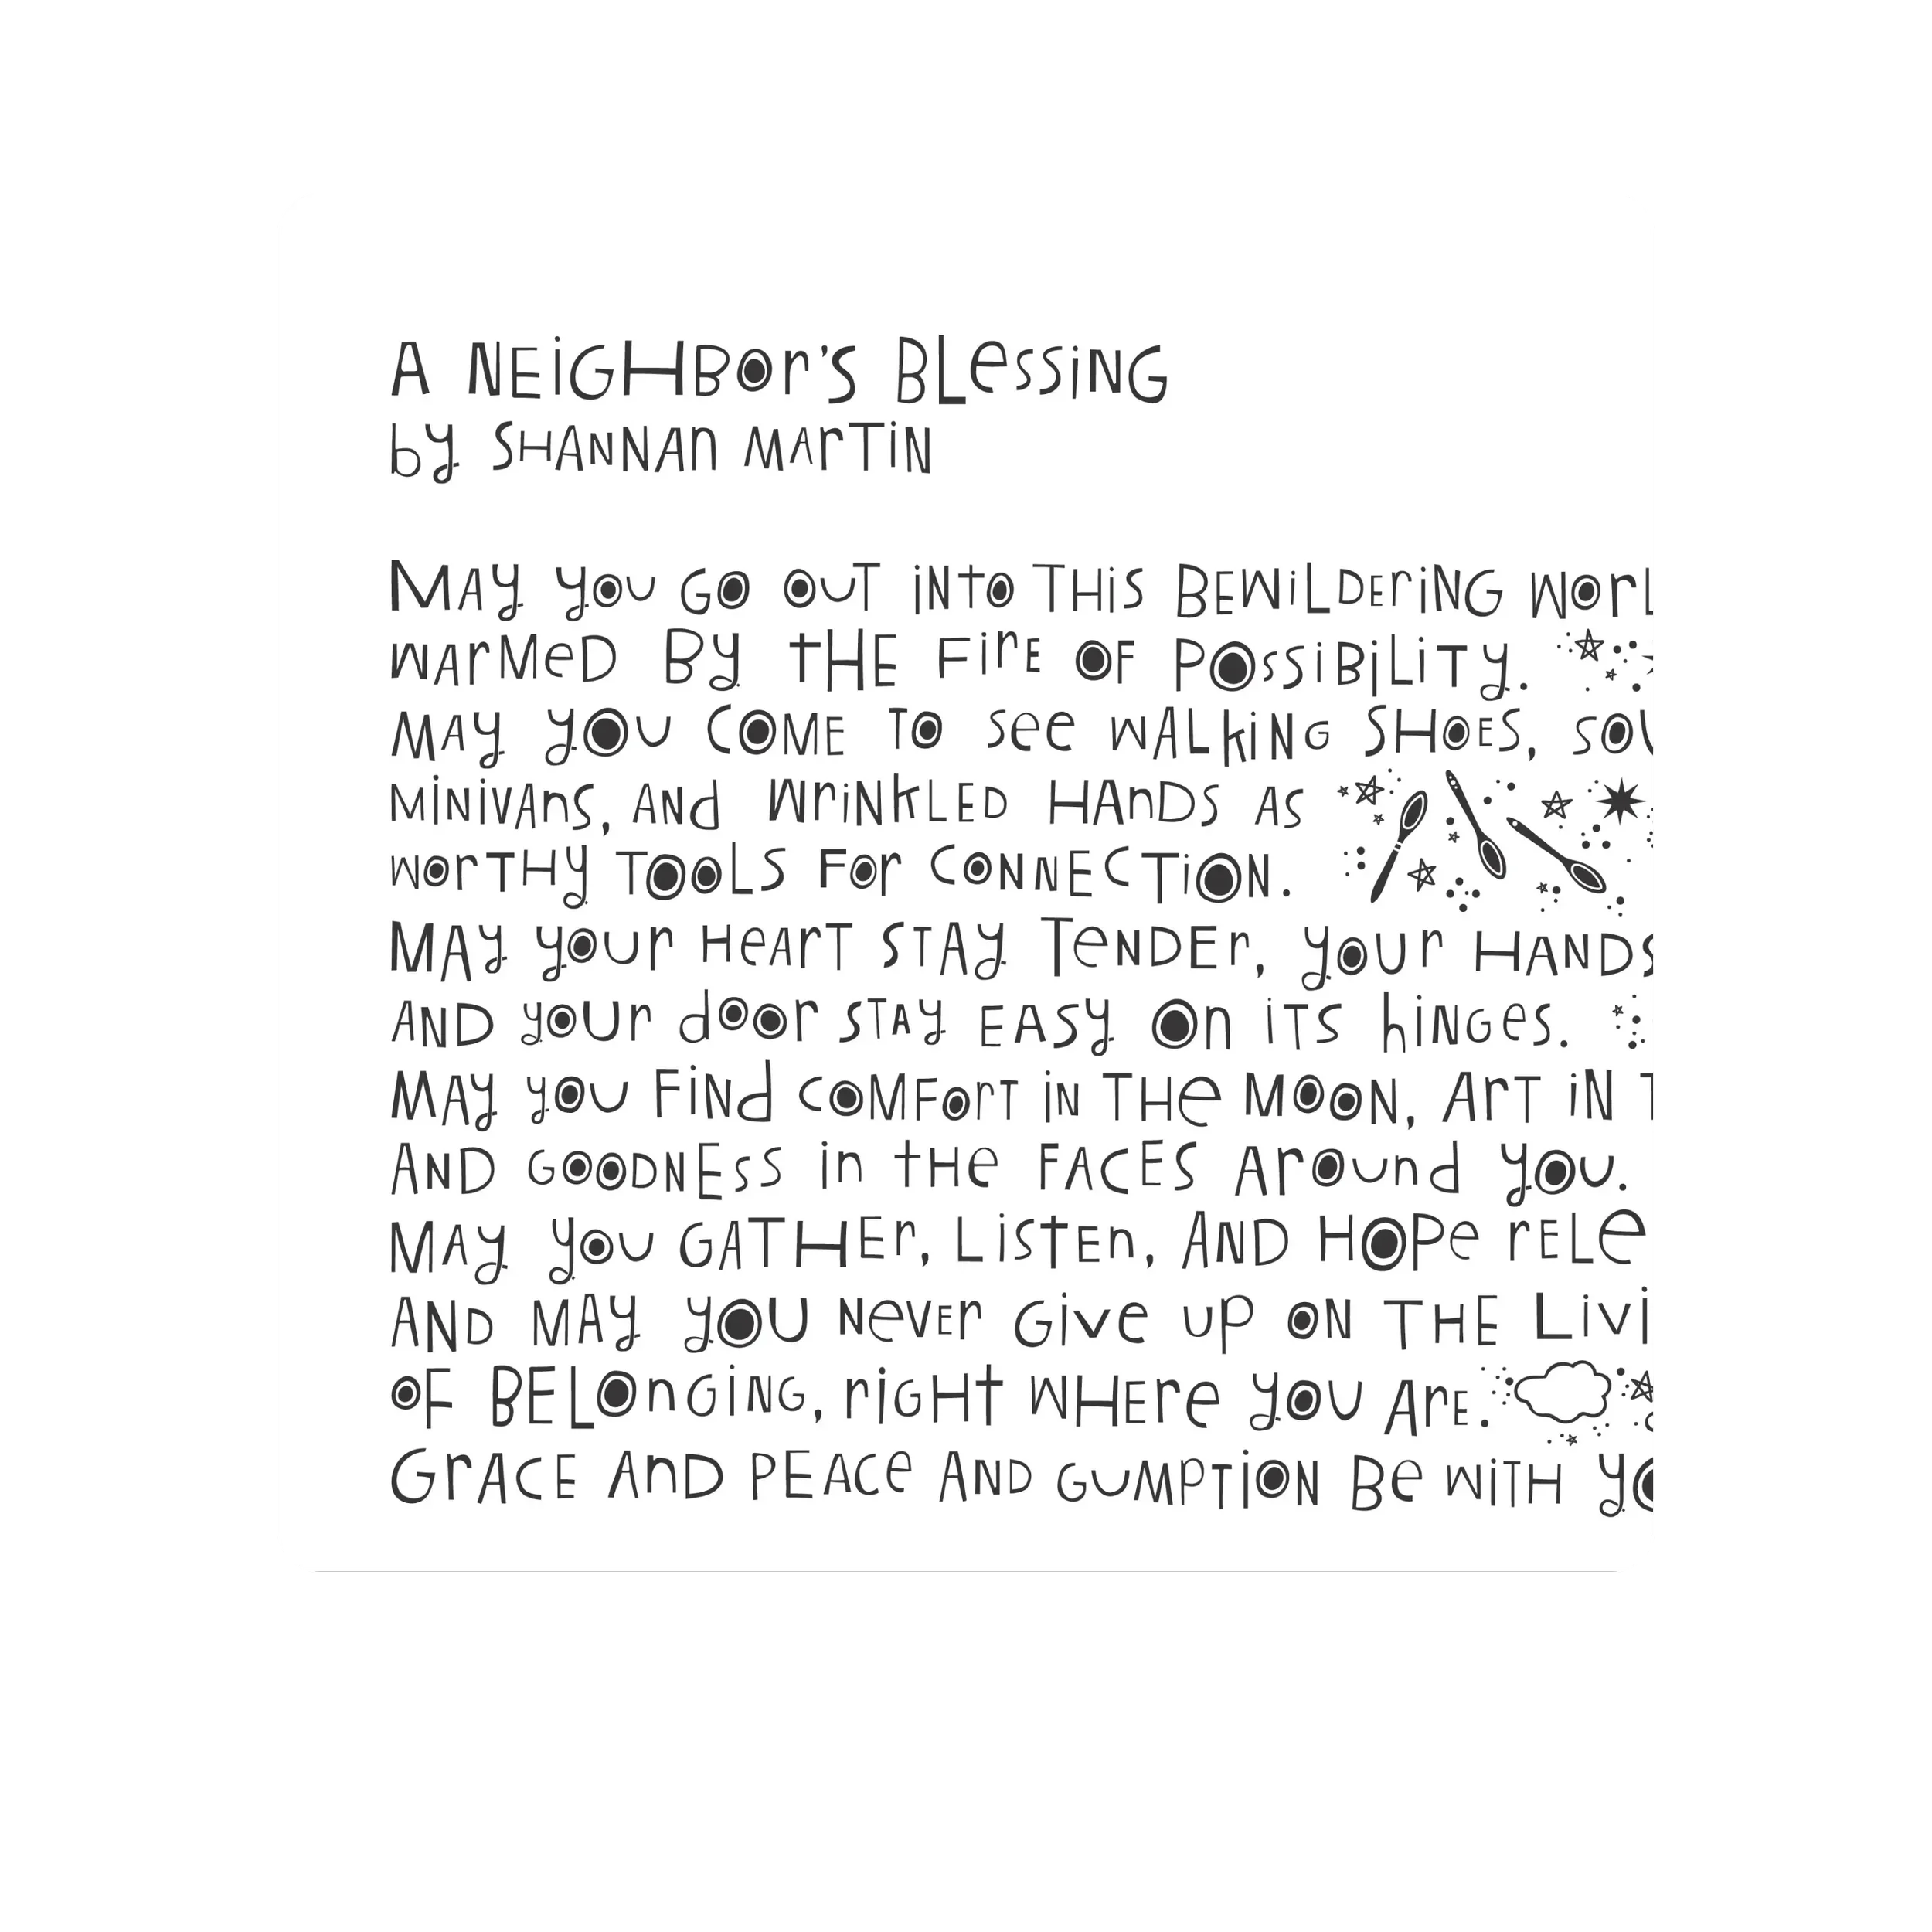 A Neighbor's Blessing
by Shannan Martin
May you go out into this bewildering worl
warmed by the fire of possibility.
May you come to see walking shoes, sou
minivans, and wrinkled hands as
worthy tools for connection.
May your heart stay tender, your hands
and your door stay easy on its hinges.
May you find comfort in the moon, art in t
and goodness in the faces around you.
May you gather, listen, and hope rele
And may you never give up on the livi
of belonging, right where you are.
Grace and peace and gumption be with yo